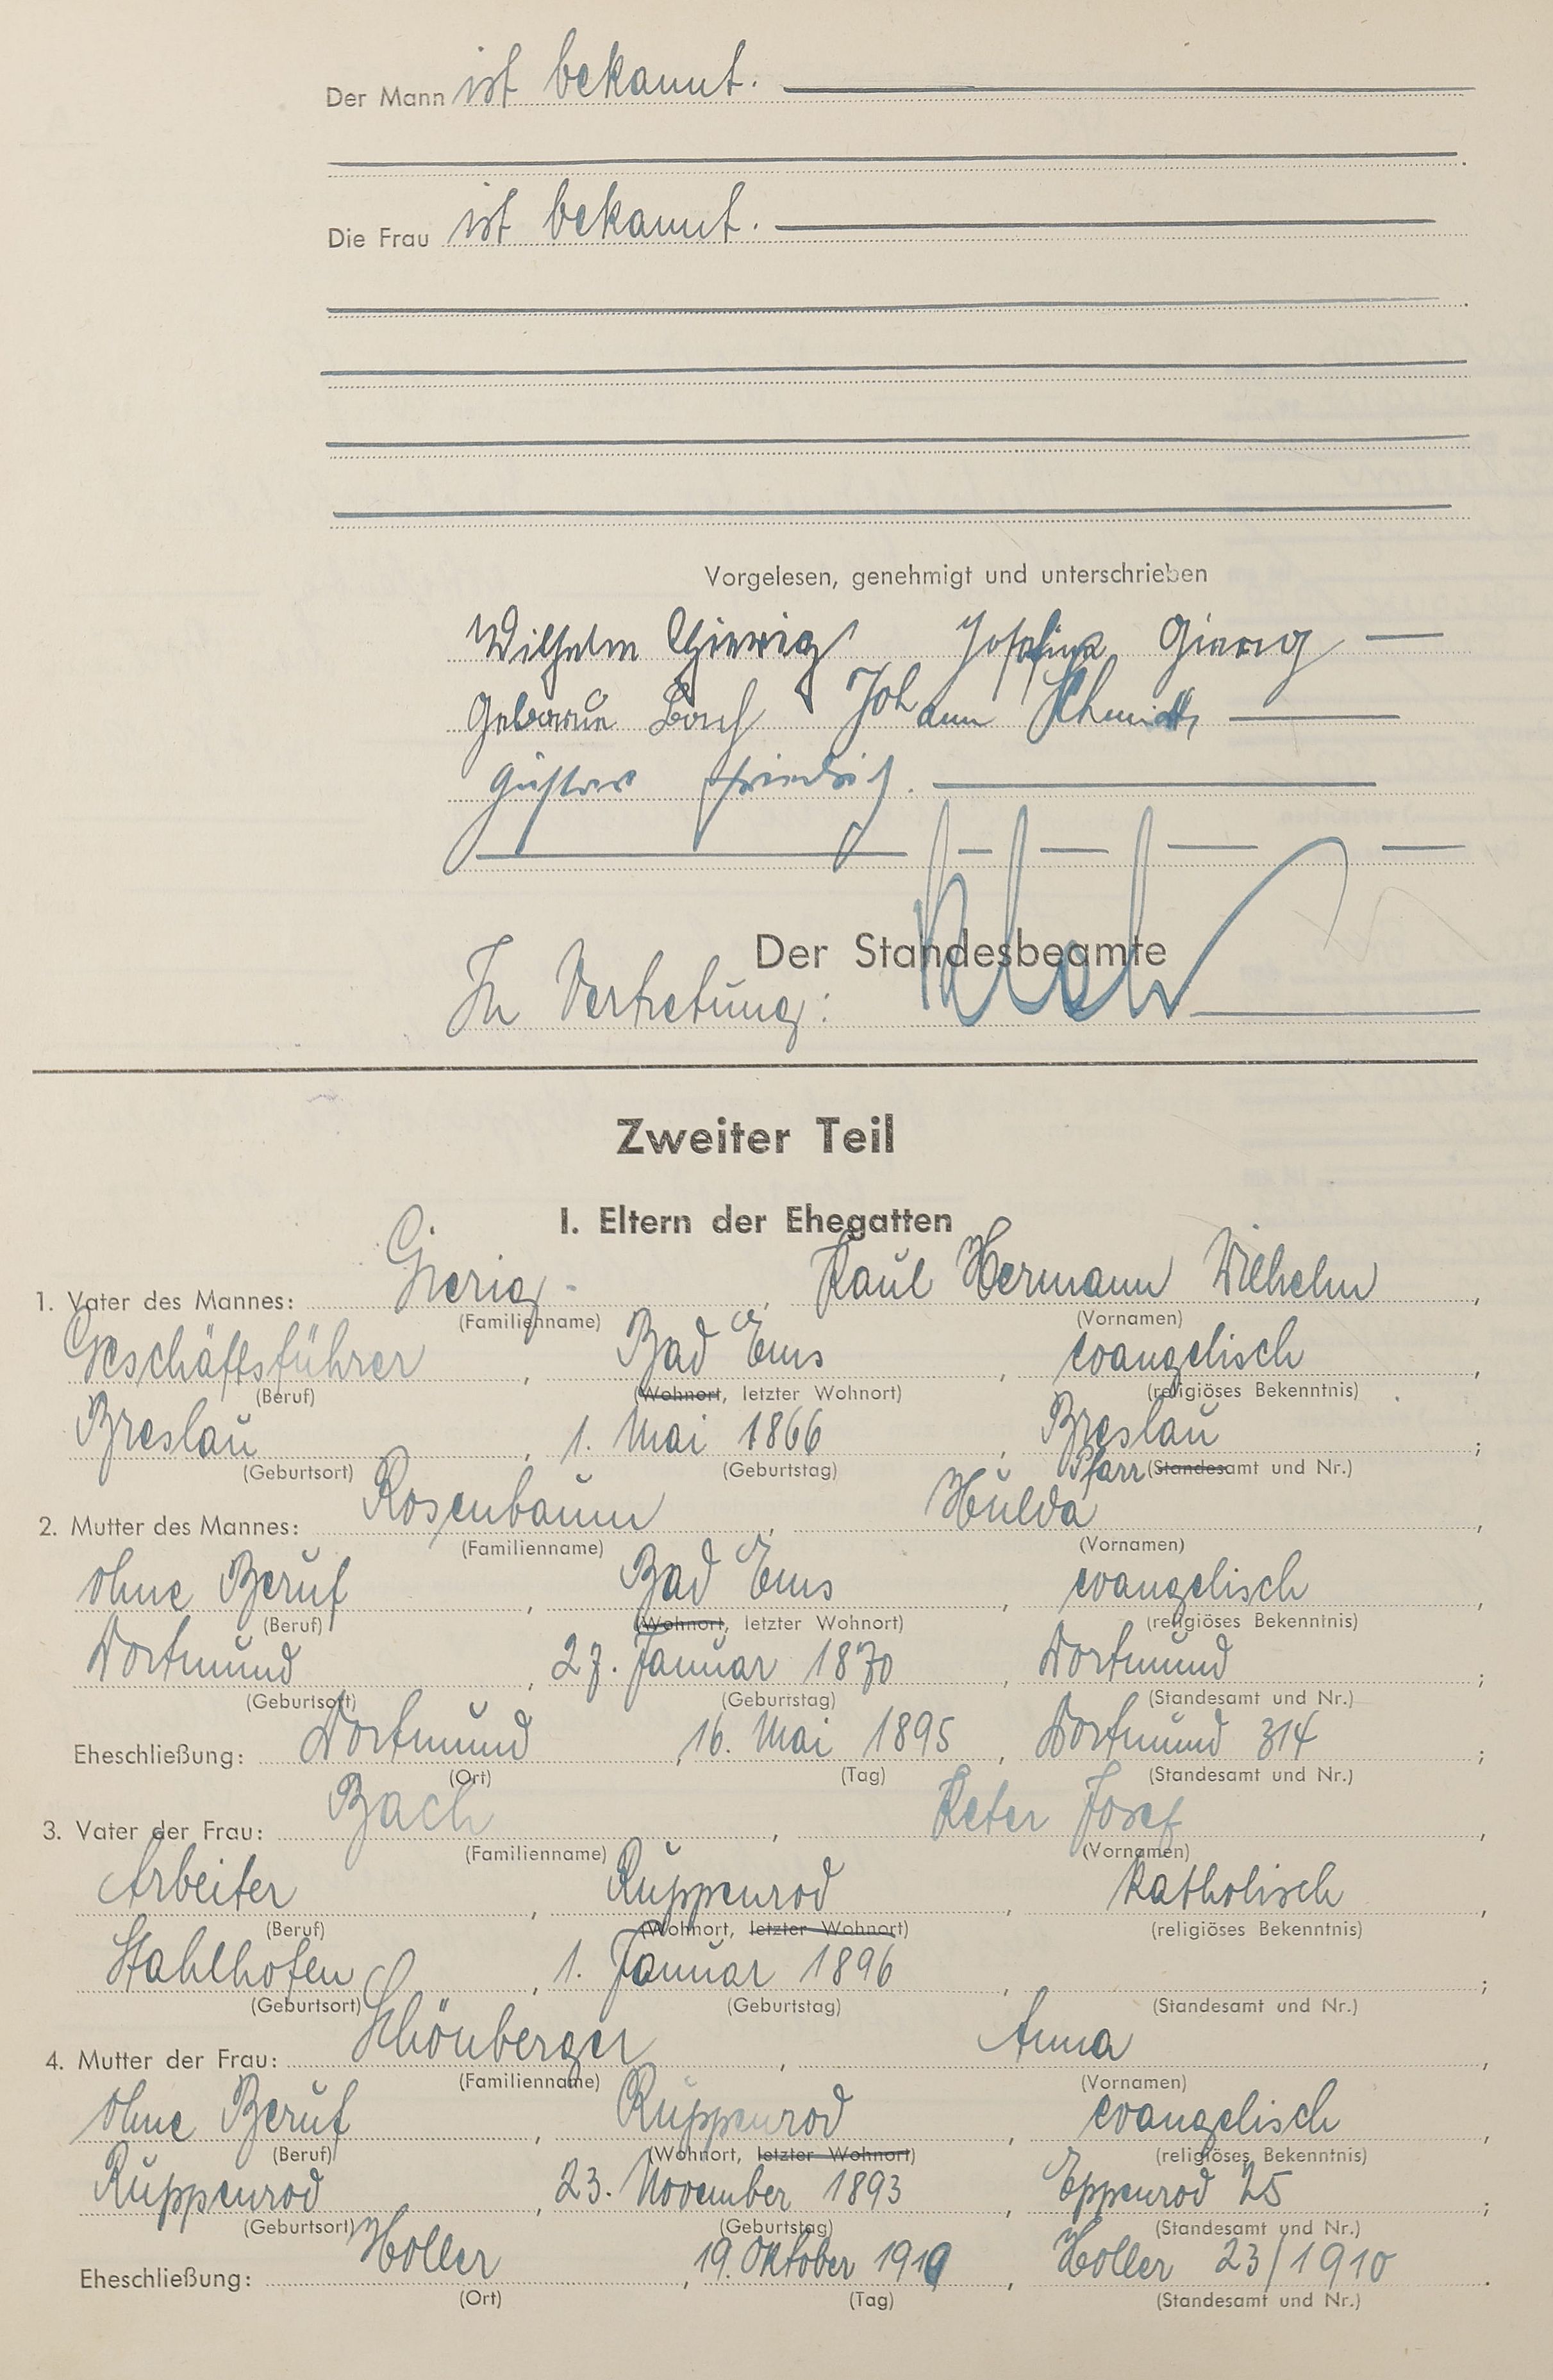 Der Mann ist bekannt.
Die Frau ist bekannt.
Vorgelesen, genehmigt und unterschrieben
Wilhelm Gierig Josefine Gierig
Geborene Bach Johann Schmidt,
Gustav Friedrich.
Der Standesbeamte
In Vertretung:
Zweiter Teil
I. Eltern der Ehegatten
1. Vater des Mannes: Gierig, Paul Hermann Wilhelm,
(Familienname) (Vornamen)
Geschäftsführer, Bad Ems, evangelisch,
(Beruf) (Wohnort, letzter Wohnort) (religiöses Bekenntnis)
Breslau, 1. Mai 1866, Breslau;
(Geburtsort) (Geburtstag) Pfarr (Standesamt und Nr.)
2. Mutter des Mannes: Rosenbaum, Hulda,
(Familienname) (Vornamen)
ohne Beruf, Bad Ems, evangelisch,
(Beruf) (Wohnort, letzter Wohnort) (religiöses Bekenntnis)
Dortmund, 27. Januar 1870, Dortmund;
(Geburtsort) (Geburtstag) (Standesamt und Nr.)
Eheschließung: Dortmund, 16. Mai 1895, Dortmund 314;
(Ort) (Tag) (Standesamt und Nr.)
3. Vater der Frau: Bach, Peter Josef,
(Familienname) (Vornamen)
Arbeiter, Ruppenrod, katholisch,
(Beruf) (Wohnort, letzter Wohnort) (religiöses Bekenntnis)
Stahlhofen, 1. Januar 1896, ;
(Geburtsort) (Geburtstag) (Standesamt und Nr.)
4. Mutter der Frau: Schönberger, Anna,
(Familienname) (Vornamen)
ohne Beruf, Ruppenrod, evangelisch,
(Beruf) (Wohnort, letzter Wohnort) (religiöses Bekenntnis)
Ruppenrod, 23. November 1893, Eppenrod 25;
(Geburtsort) (Geburtstag) (Standesamt und Nr.)
Eheschließung: Holler, 19. Oktober 1919, Holler 23/1910.
(Ort) (Tag) (Standesamt und Nr.)